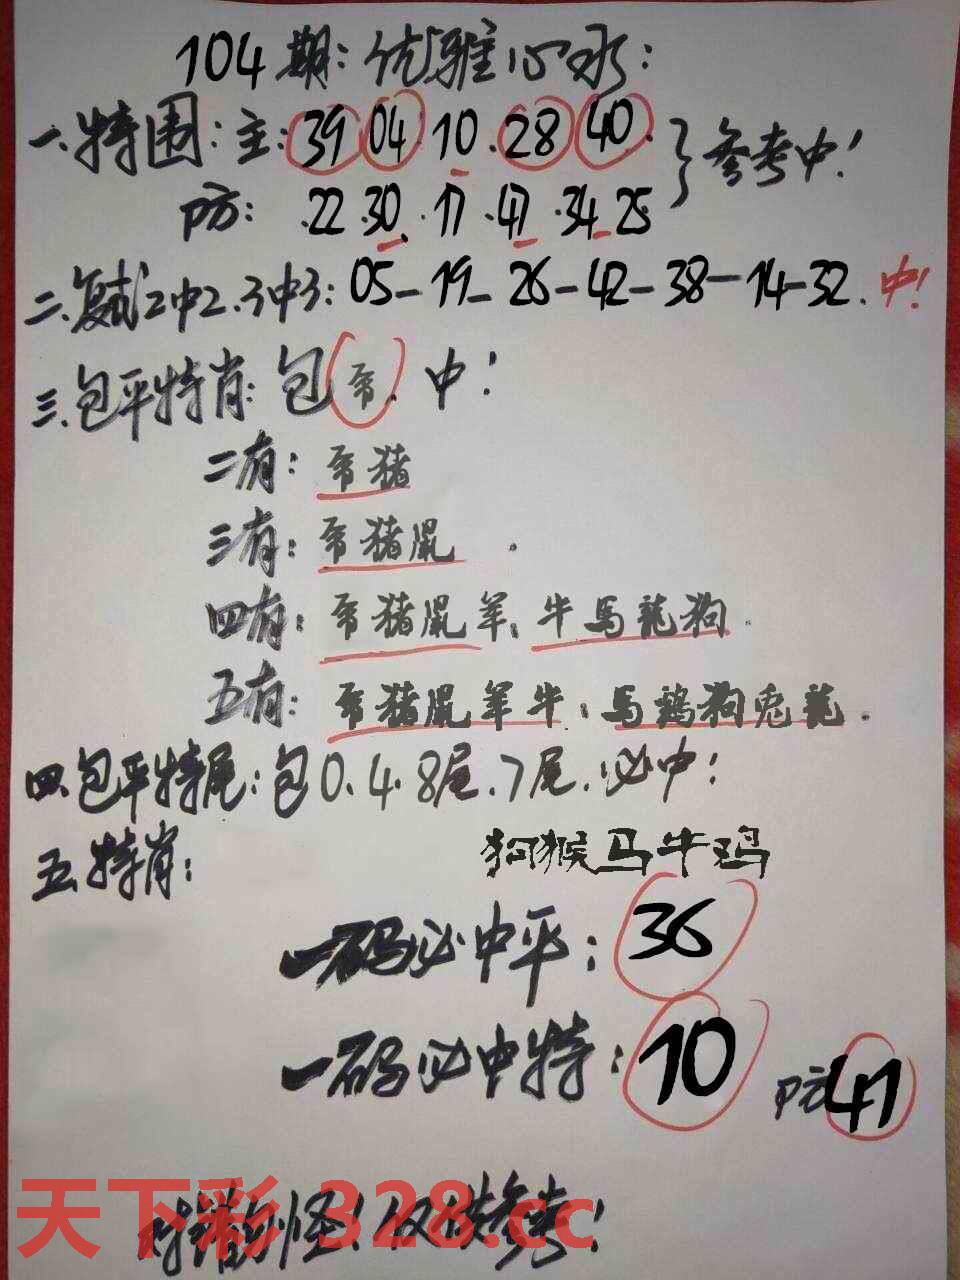 104期：优雅心水：
一.特围：主：39.04.10.28.40.
防：.22.30.17.47.34.25
参考中！
二.复式2中2.3中3：05-19-26-42-38-14-32.中！
三.包平特肖：包帝.中！
二有：帝猪
三有：帝猪鼠.
四有：帝猪鼠羊、牛馬龍狗.
五有：帝猪鼠羊牛、馬鷄狗兔龍.
四.包平特尾：包0.4.8尾.7尾.必中！
五.特肖：狗猴马牛鸡
一码必中平：36
一码必中特：10 防41
天下彩 328.cc
对错别怪！仅供参考！